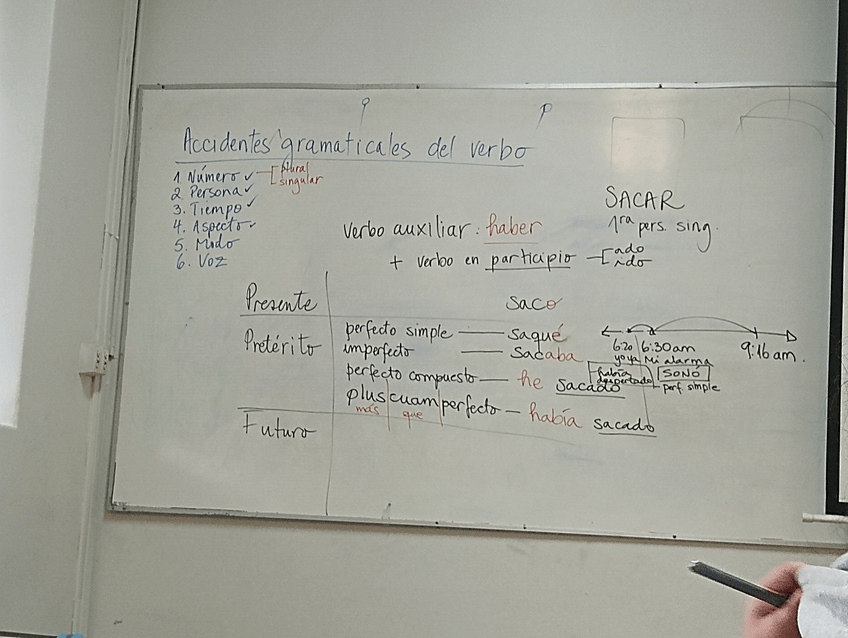 Accidentes gramaticales del verbo
1 Número ✓ [plural
singular
2. Persona ✓
3. Tiempo ✓
4. Aspecto ✓
5. Modo
6. Voz
SACAR
1ra pers. sing.
verbo auxiliar: haber
+ verbo en participio [ado
ido
Presente saco
Pretérito perfecto simple — saqué
imperfecto — sacaba
perfecto compuesto — he sacado
pluscuamperfecto — había sacado
más que
Futuro
6:20 6:30am 9:16am.
yo ya Mi alarma
había despertado SONÓ
perf. simple